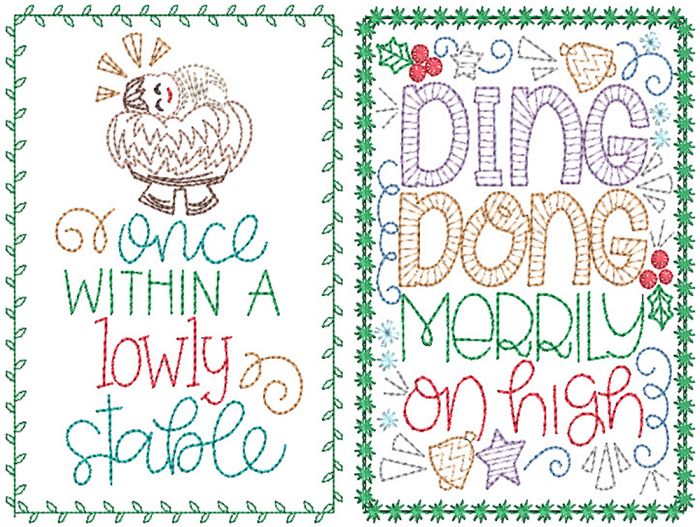 once
WITHIN A
lowly
stable
DING
DONG
MERRILY
on high